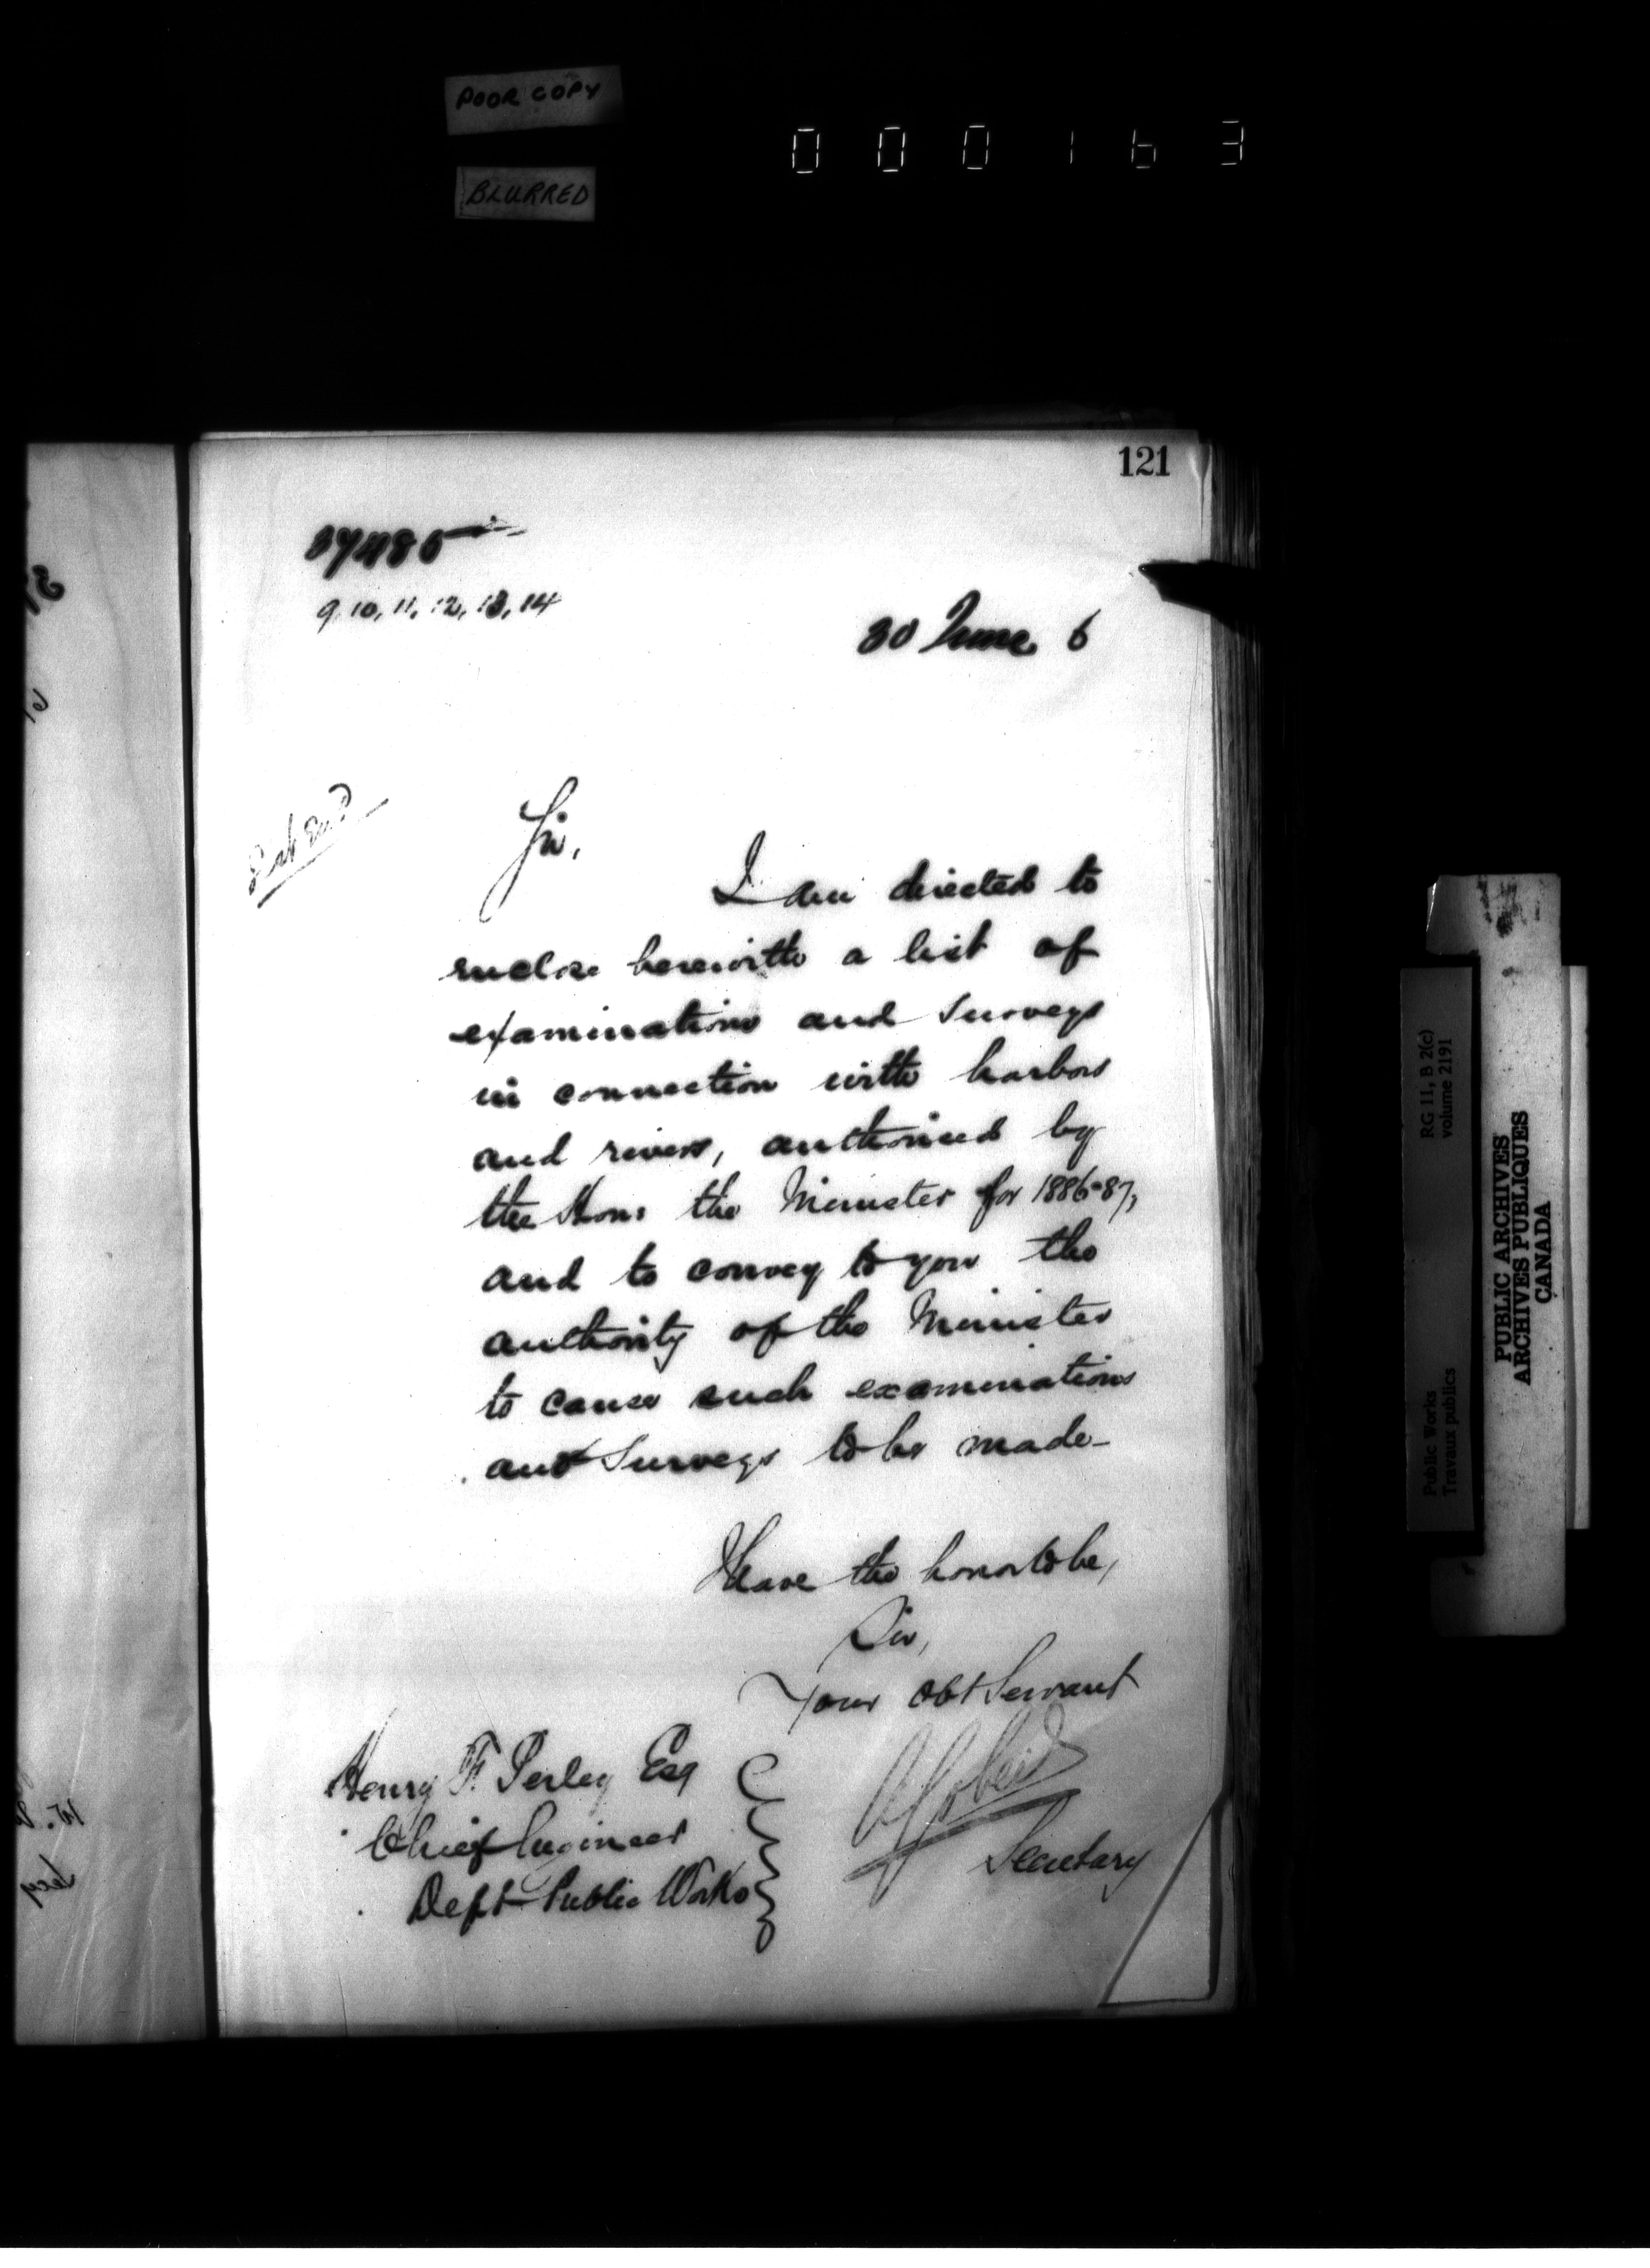 POOR COPY
BLURRED
000163
121
37485
9, 10, 11, 12, 13, 14
30 June 6
Sir,
I am directed to
enclose herewith a list of
examinations and surveys
in connection with harbors
and rivers, authorised by
the Hon: the Minister for 1886-87,
and to convey to you the
authority of the Minister
to cause such examinations
and surveys to be made_
I have the honor to be,
Sir,
Your Obt Servant
Henry F. Perley Esq
Chief Engineer
Dept Public Works
Secretary
Public Works
Travaux publics
RG 11, B 2(c)
volume 2191
PUBLIC ARCHIVES
ARCHIVES PUBLIQUES
CANADA